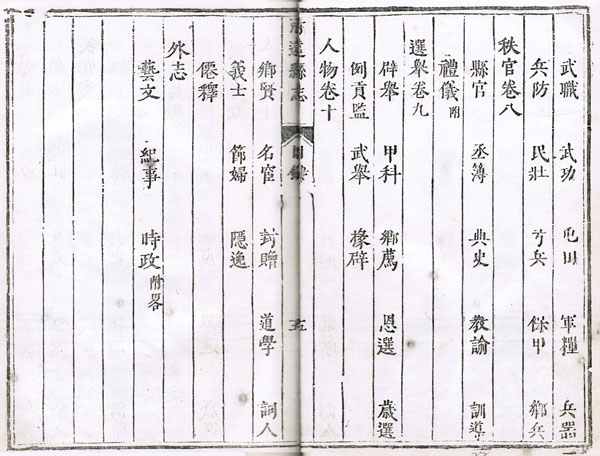 武職 武功 屯田 軍糧 兵器
兵防 民壯 弓兵 餘甲 鄉兵
秩官卷八
縣官 丞簿 典史 教諭 訓導
禮儀附
選舉卷九
辟舉 甲科 鄉薦 恩選 歲選
例貢監 武舉 椽辟
人物卷十
縣志 目錄 五
鄉賢 名宦 封贈 道學 詞人
義士 節婦 隱逸
僊釋
外志
藝文 紀事 時政附畧